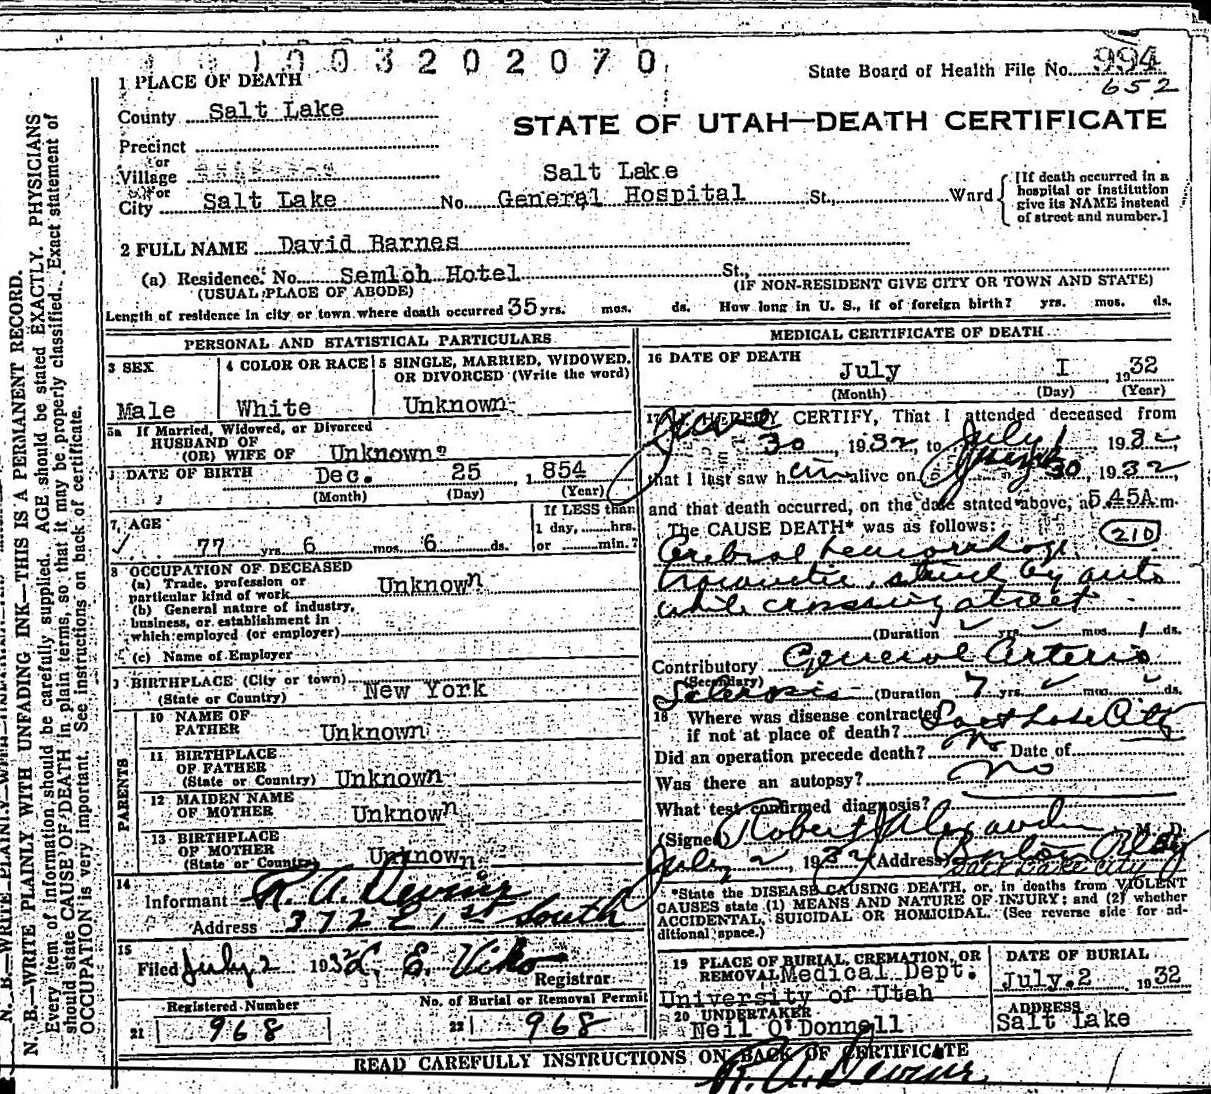 1003202070
State Board of Health File No. 994
652
1 PLACE OF DEATH
County Salt Lake
STATE OF UTAH—DEATH CERTIFICATE
Precinct
or
Village
or
City Salt Lake No. Salt Lake General Hospital St., Ward
[If death occurred in a hospital or institution give its NAME instead of street and number.]
2 FULL NAME David Barnes
(a) Residence. No. Semloh Hotel St.,
(USUAL PLACE OF ABODE) (IF NON-RESIDENT GIVE CITY OR TOWN AND STATE)
Length of residence in city or town where death occurred 35 yrs. mos. ds. How long in U. S., if of foreign birth? yrs. mos. ds.
PERSONAL AND STATISTICAL PARTICULARS
3 SEX
Male
4 COLOR OR RACE
White
5 SINGLE, MARRIED, WIDOWED, OR DIVORCED (Write the word)
Unknown
5a If Married, Widowed, or Divorced
HUSBAND OF
(OR) WIFE OF Unknown
DATE OF BIRTH Dec. 25, 1854
(Month) (Day) (Year)
7 AGE
77 yrs. 6 mos. 6 ds.
If LESS than 1 day, hrs. or min.?
8 OCCUPATION OF DECEASED
(a) Trade, profession or particular kind of work Unknown
(b) General nature of industry, business, or establishment in which employed (or employer)
(c) Name of Employer
9 BIRTHPLACE (City or town)
(State or Country) New York
PARENTS
10 NAME OF FATHER Unknown
11 BIRTHPLACE OF FATHER (State or Country) Unknown
12 MAIDEN NAME OF MOTHER Unknown
13 BIRTHPLACE OF MOTHER (State or Country) Unknown
14
Informant R. A. Devine
Address 372 E 1st South
15
Filed July 2 1932 L. E. Viko
Registrar
Registered Number
21 968
No. of Burial or Removal Permit
22 968
MEDICAL CERTIFICATE OF DEATH
16 DATE OF DEATH
July I, 1932
(Month) (Day) (Year)
17 I HEREBY CERTIFY, That I attended deceased from
June 30 1932, to July 1 1932
that I last saw him alive on June 30, 1932
and that death occurred, on the date stated above, at 5.45A.m.
The CAUSE DEATH* was as follows: 210
Cerebral hemorrhage
traumatic, struck by auto
while crossing street
(Duration yrs. mos. 1 ds.
Contributory General Arterio
(Secondary)
Sclerosis (Duration 7 yrs. mos. ds.
18 Where was disease contracted if not at place of death? Salt Lake City
Did an operation precede death? no Date of
Was there an autopsy? no
What test confirmed diagnosis?
(Signed) Robert Alexander M. D.
July 2, 1932 (Address)
Salt Lake City
*State the DISEASE CAUSING DEATH, or, in deaths from VIOLENT CAUSES state (1) MEANS AND NATURE OF INJURY; and (2) whether ACCIDENTAL, SUICIDAL OR HOMICIDAL. (See reverse side for additional space.)
19 PLACE OF BURIAL, CREMATION, OR REMOVAL Medical Dept. University of Utah
DATE OF BURIAL
July 2 1932
20 UNDERTAKER
Neil O'Donnell
ADDRESS
Salt Lake
READ CAREFULLY INSTRUCTIONS ON BACK OF CERTIFICATE
R. A. Devine
N. B.—WRITE PLAINLY WITH UNFADING INK—THIS IS A PERMANENT RECORD.
Every item of information should be carefully supplied. AGE should be stated EXACTLY. PHYSICIANS
should state CAUSE OF DEATH in plain terms, so that it may be properly classified. Exact statement of
OCCUPATION is very important. See instructions on back of certificate.